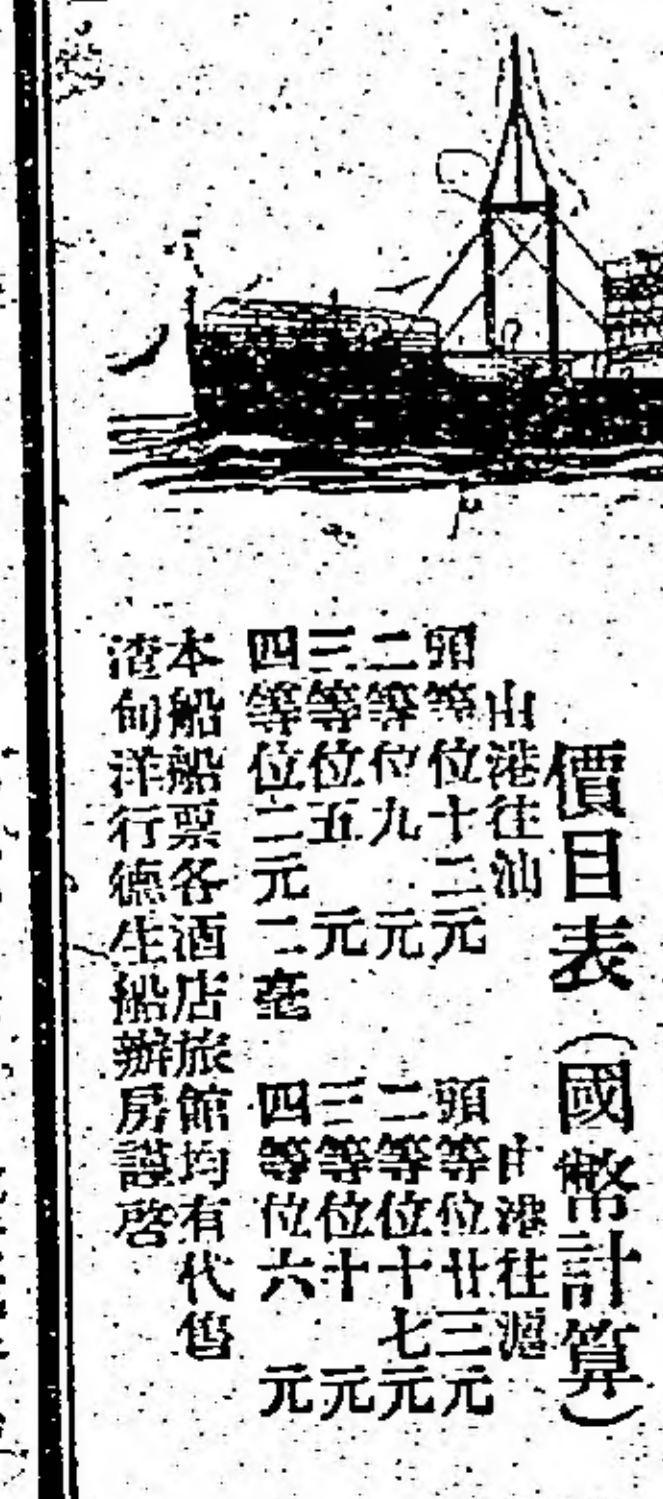 價目表（國幣計算）
由港往汕
頭等位十二元
二等位九元
三等位五元
四等位二元二毫
由港往滬
頭等位廿三元
二等位十七元
三等位十元
四等位六元
本船船票各酒店旅館均有代售
渣甸洋行德生船辦房謹啓